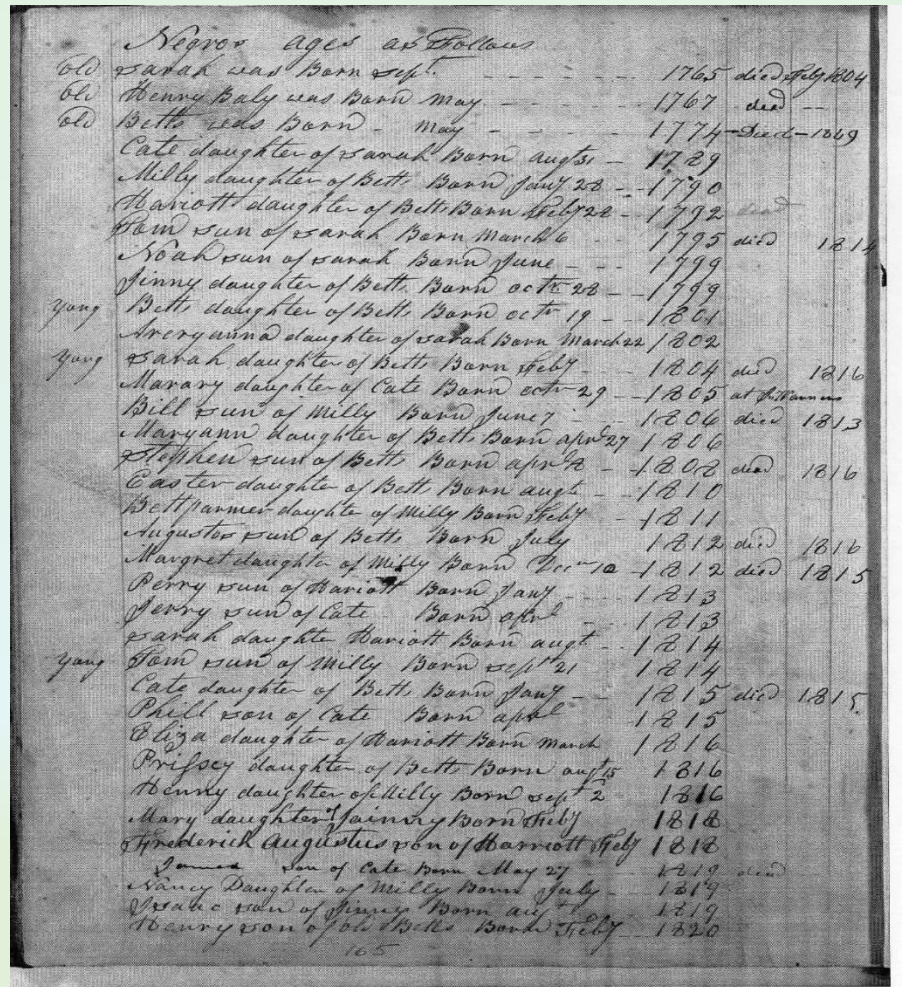 Negros ages as Follows
old Sarah was Born Sept. - - - - - 1765 died Feby 1804
old Henny Baly was Born May - - - - 1767 died --
old Betts was Born - May - - - - 1774 - Died - 1869
Cate daughter of Sarah Born augt 31 - 1789
Milly daughter of Betts Born Jany 28 - - 1790
Hariott daughter of Betts Born Feby 28 - 1792 dead
Tom sun of Sarah Born March 6 - - 1795 died 1814
Noah sun of Sarah Born June - - - 1799
Jinny daughter of Betts Born octr 28 - - 1799
yong Betts daughter of Betts Born octr 19 - - - 1801
Averyanna daughter of Sarah Born March 22 1802
yong Sarah daughter of Betts Born Feby - - 1804 died 1816
Marary daughter of Cate Born octr 29 - - 1805 at
Bill sun of Milly Born June 7 - - 1806 died 1813
Maryann daughter of Betts Born aprl 27 1806
Stephen sun of Betts Born aprl 8 - - 1808 died 1816
Easter daughter of Betts Born augt - - 1810
Bettparmer daughter of Milly Born Feby - 1811
Augustos sun of Betts Born July 1812 died 1816
Margret daughter of Milly Born Decr 10 - 1812 died 1815
Perry sun of Hariott Born Jany - - - - 1813
Jerry sun of Cate - Born aprl - - 1813
Sarah daughter Hariott Born augt - - 1814
yong Tom sun of Milly Born Septr 21 1814
Cate daughter of Betts Born Jany - - 1815 died 1815.
Phill son of Cate Born aprl 1815
Eliza daughter of Hariott Born March 1816
Prissey daughter of Betts Born augt 15 1816
Henny daughter of Milly Born Sept 2 1816
Mary daughter of Jainny Born Feby 1818
Frederick Augustus son of Harriott Feby 1818
son of Cate Born May 27 - - 1819 dead
Nancy Daughter of Milly Born July - - 1819
Isaac son of Jinny Born augt 1819
Henry son of old Betts Born Feby - - 1820
165